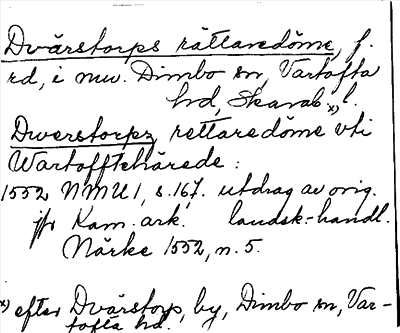 Dvärstorps rättaredöme, f.
rd, i nuv. Dimbo sn, Vartofta
hd, Skarab. x) l.
Dwerstorpz rettaredöme vti
Wartofftehärede:
1552 NMU 1, s. 167. utdrag av orig.
jfr Kam. ark. landsk.-handl.
Närke 1552, n. 5.
x) efter Dvärstorp, by, Dimbo sn, Var-
tofta hd.